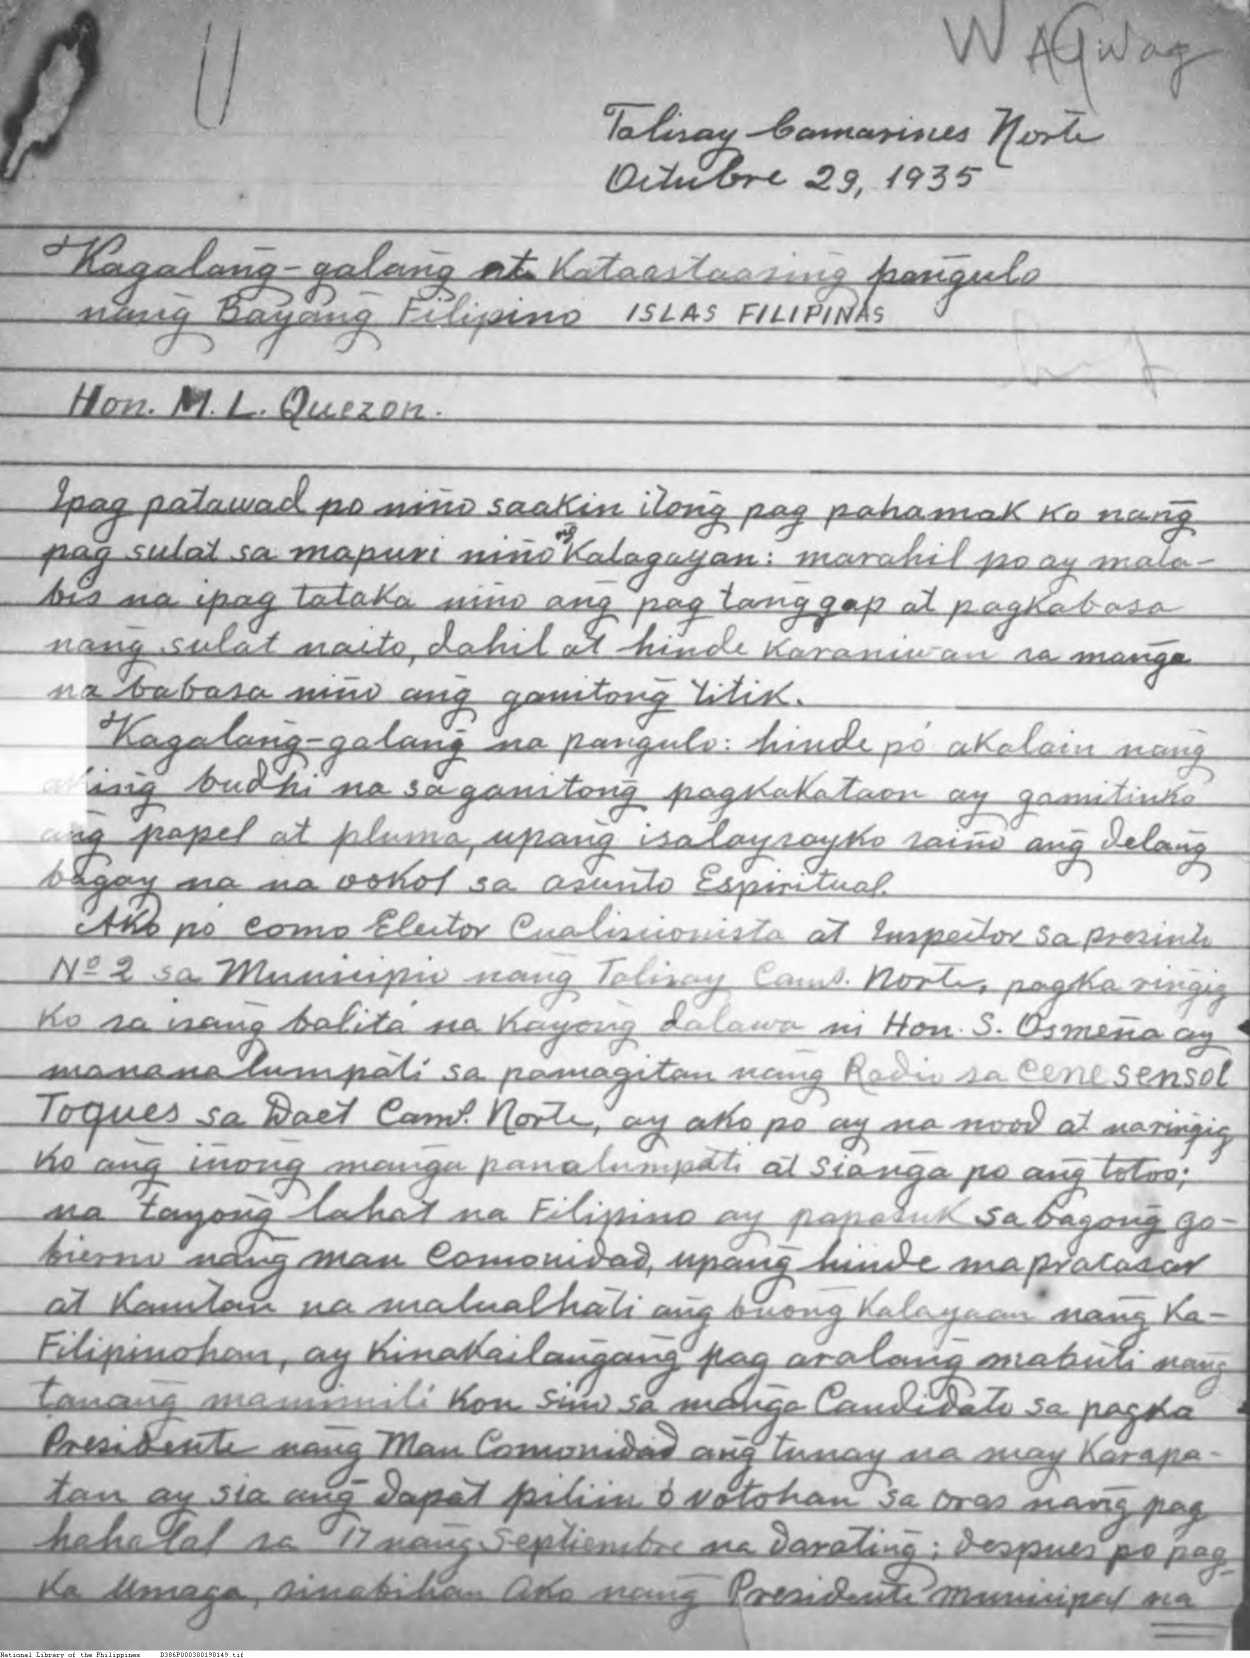 U
WAGwag
Talisay Camarines Norte
Octubre 29, 1935
Kagalang̃-galang̃ at Kataastaasing pang̃ulo
nang̃ Bayang̃ Filipino ISLAS FILIPINAS
Hon. M. L. Quezon.
Ipag patawad po niño saakin itong̃ pag pahamak ko nang̃
pag sulat sa mapuri niño ng̃ Kalagayan: marahil po ay mala-
bis na ipag tataka niño ang̃ pag tang̃gap at pagkabasa
nang̃ sulat naito, dahil at hinde karaniwan sa mang̃a
na babasa niño ang̃ ganitong̃ titik.
Kagalang̃-galang̃ na pangulo: hinde pó akalain nang̃
aking̃ budhi na sa ganitong̃ pagkakataon ay gamitinko
ang̃ papel at pluma, upang̃ isalaysayko saiño ang̃ delang̃
bagay na na ookol sa asunto Espiritual.
Ako pó como Elector Cualisionista at Inspector sa presinto
Nº 2 sa Municipio nang̃ Talisay Cams. Norte, pagka ring̃ig
ko sa isang̃ balitá na kayong̃ dalawa ni Hon. S. Osmeña ay
mananalumpáti sa pamagitan nang̃ Radio sa Cene sensol
Toques sa Daet Cams. Norte, ay ako po ay na nood at naring̃ig
ko ang̃ iñong mang̃a panalumpáti at siang̃a po ang̃ totoo;
na tayong̃ lahat na Filipino ay papasuk sa bagong̃ go-
bierno nang̃ man Comonidad, upang̃ hinde mapracasar
at kamtan na malualháti ang̃ buong̃ kalayaan nang̃ Ka-
Filipinohan, ay kinakailang̃ang̃ pag aralang̃ mabuti nang̃
tanang̃ mamimili kon sino sa mang̃a Candidato sa pagka
Presidente nang̃ Man Comonidad ang̃ tunay na may karapa-
tan ay sia ang̃ dapat piliin ó votohan sa oras nang̃ pag
hahalal sa 17 nang̃ Septiembre na darating̃; despues po pag-
ka umaga, sinabihan ako nang̃ Presidente municipal na
National Library of the Philippines D386P000380198149.tif